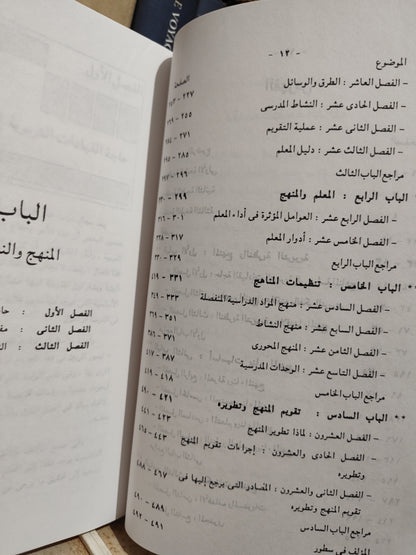 - ١٢ -
الموضوع
الصفحة
- الفصل العاشر : الطرق والوسائل ٢٢٧ -
- الفصل الحادى عشر : النشاط المدرسى ٢٥٥ -
- الفصل الثانى عشر : عملية التقويم ٢٧١ -
- الفصل الثالث عشر : دليل المعلم ٢٨٥ -
مراجع الباب الثالث ٢٩٧ -
الباب الرابع : المعلم والمنهج ٢٩٩ -
- الفصل الرابع عشر : العوامل المؤثرة فى أداء المعلم ٣٠١ -
- الفصل الخامس عشر : أدوار المعلم ٣١٧ -
مراجع الباب الرابع ٣٢٩ -
** الباب الخامس : تنظيمات المناهج ٣٣١ - ٤١٩
- الفصل السادس عشر : منهج المواد الدراسية المنفصلة ٣٣٣ -
- الفصل السابع عشر : منهج النشاط ٣٥١ -
- الفصل الثامن عشر : المنهج المحورى ٣٧١ -
- الفصل التاسع عشر : الوحدات الدراسية ٣٨٧ - ٤١٧
مراجع الباب الخامس ٤١٨ - ٤١٩
** الباب السادس : تقويم المنهج وتطويره ٤٢١ - ٤٩٠
- الفصل العشرون : لماذا تطوير المنهج ٤٢٣ - ٤٤١
- الفصل الحادى والعشرون : إجراءات تقويم المنهج وتطويره ٤٤٣ - ٤٦٥
- الفصل الثانى والعشرون : المصادر التى يرجع إليها فى تقويم المنهج وتطويره ٤٦٧ - ٤٨٨
مراجع الباب السادس ٤٨٩ - ٤٩٠
المؤلف فى سطور ٤٩١ - ٤٩٢
الباب
المنهج والن
الفصل الأول :
الفصل الثانى :
الفصل الثالث :
E VOYAG